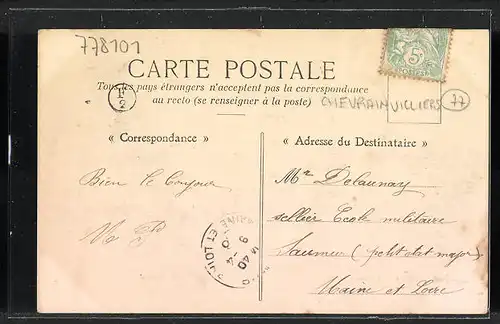 778101
CARTE POSTALE
Tous les pays étrangers n'acceptent pas la correspondance
au recto (se renseigner à la poste)
F
2
5
CHEVRAINVILLIERS 77
« Correspondance »
Bien le bonjour
« Adresse du Destinataire »
Mr Delaunay
sellier Ecole militaire
Saumur (petit état major)
Maine et Loire
ET LOIR